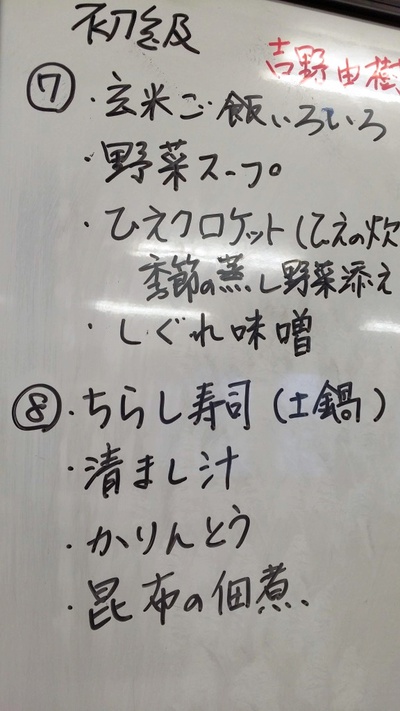 初級
吉野由樹
⑦・玄米ご飯いろいろ
・野菜スープ
・ひえクロケット(ひえの炊
季節の蒸し野菜添え
・しぐれ味噌
⑧・ちらし寿司(土鍋)
・清まし汁
・かりんとう
・昆布の佃煮、